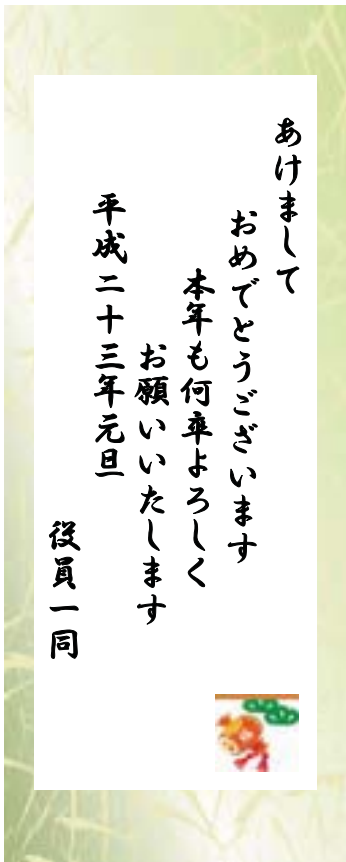 あけまして
おめでとうございます
本年も何卒よろしく
お願いいたします
平成二十三年元旦
役員一同